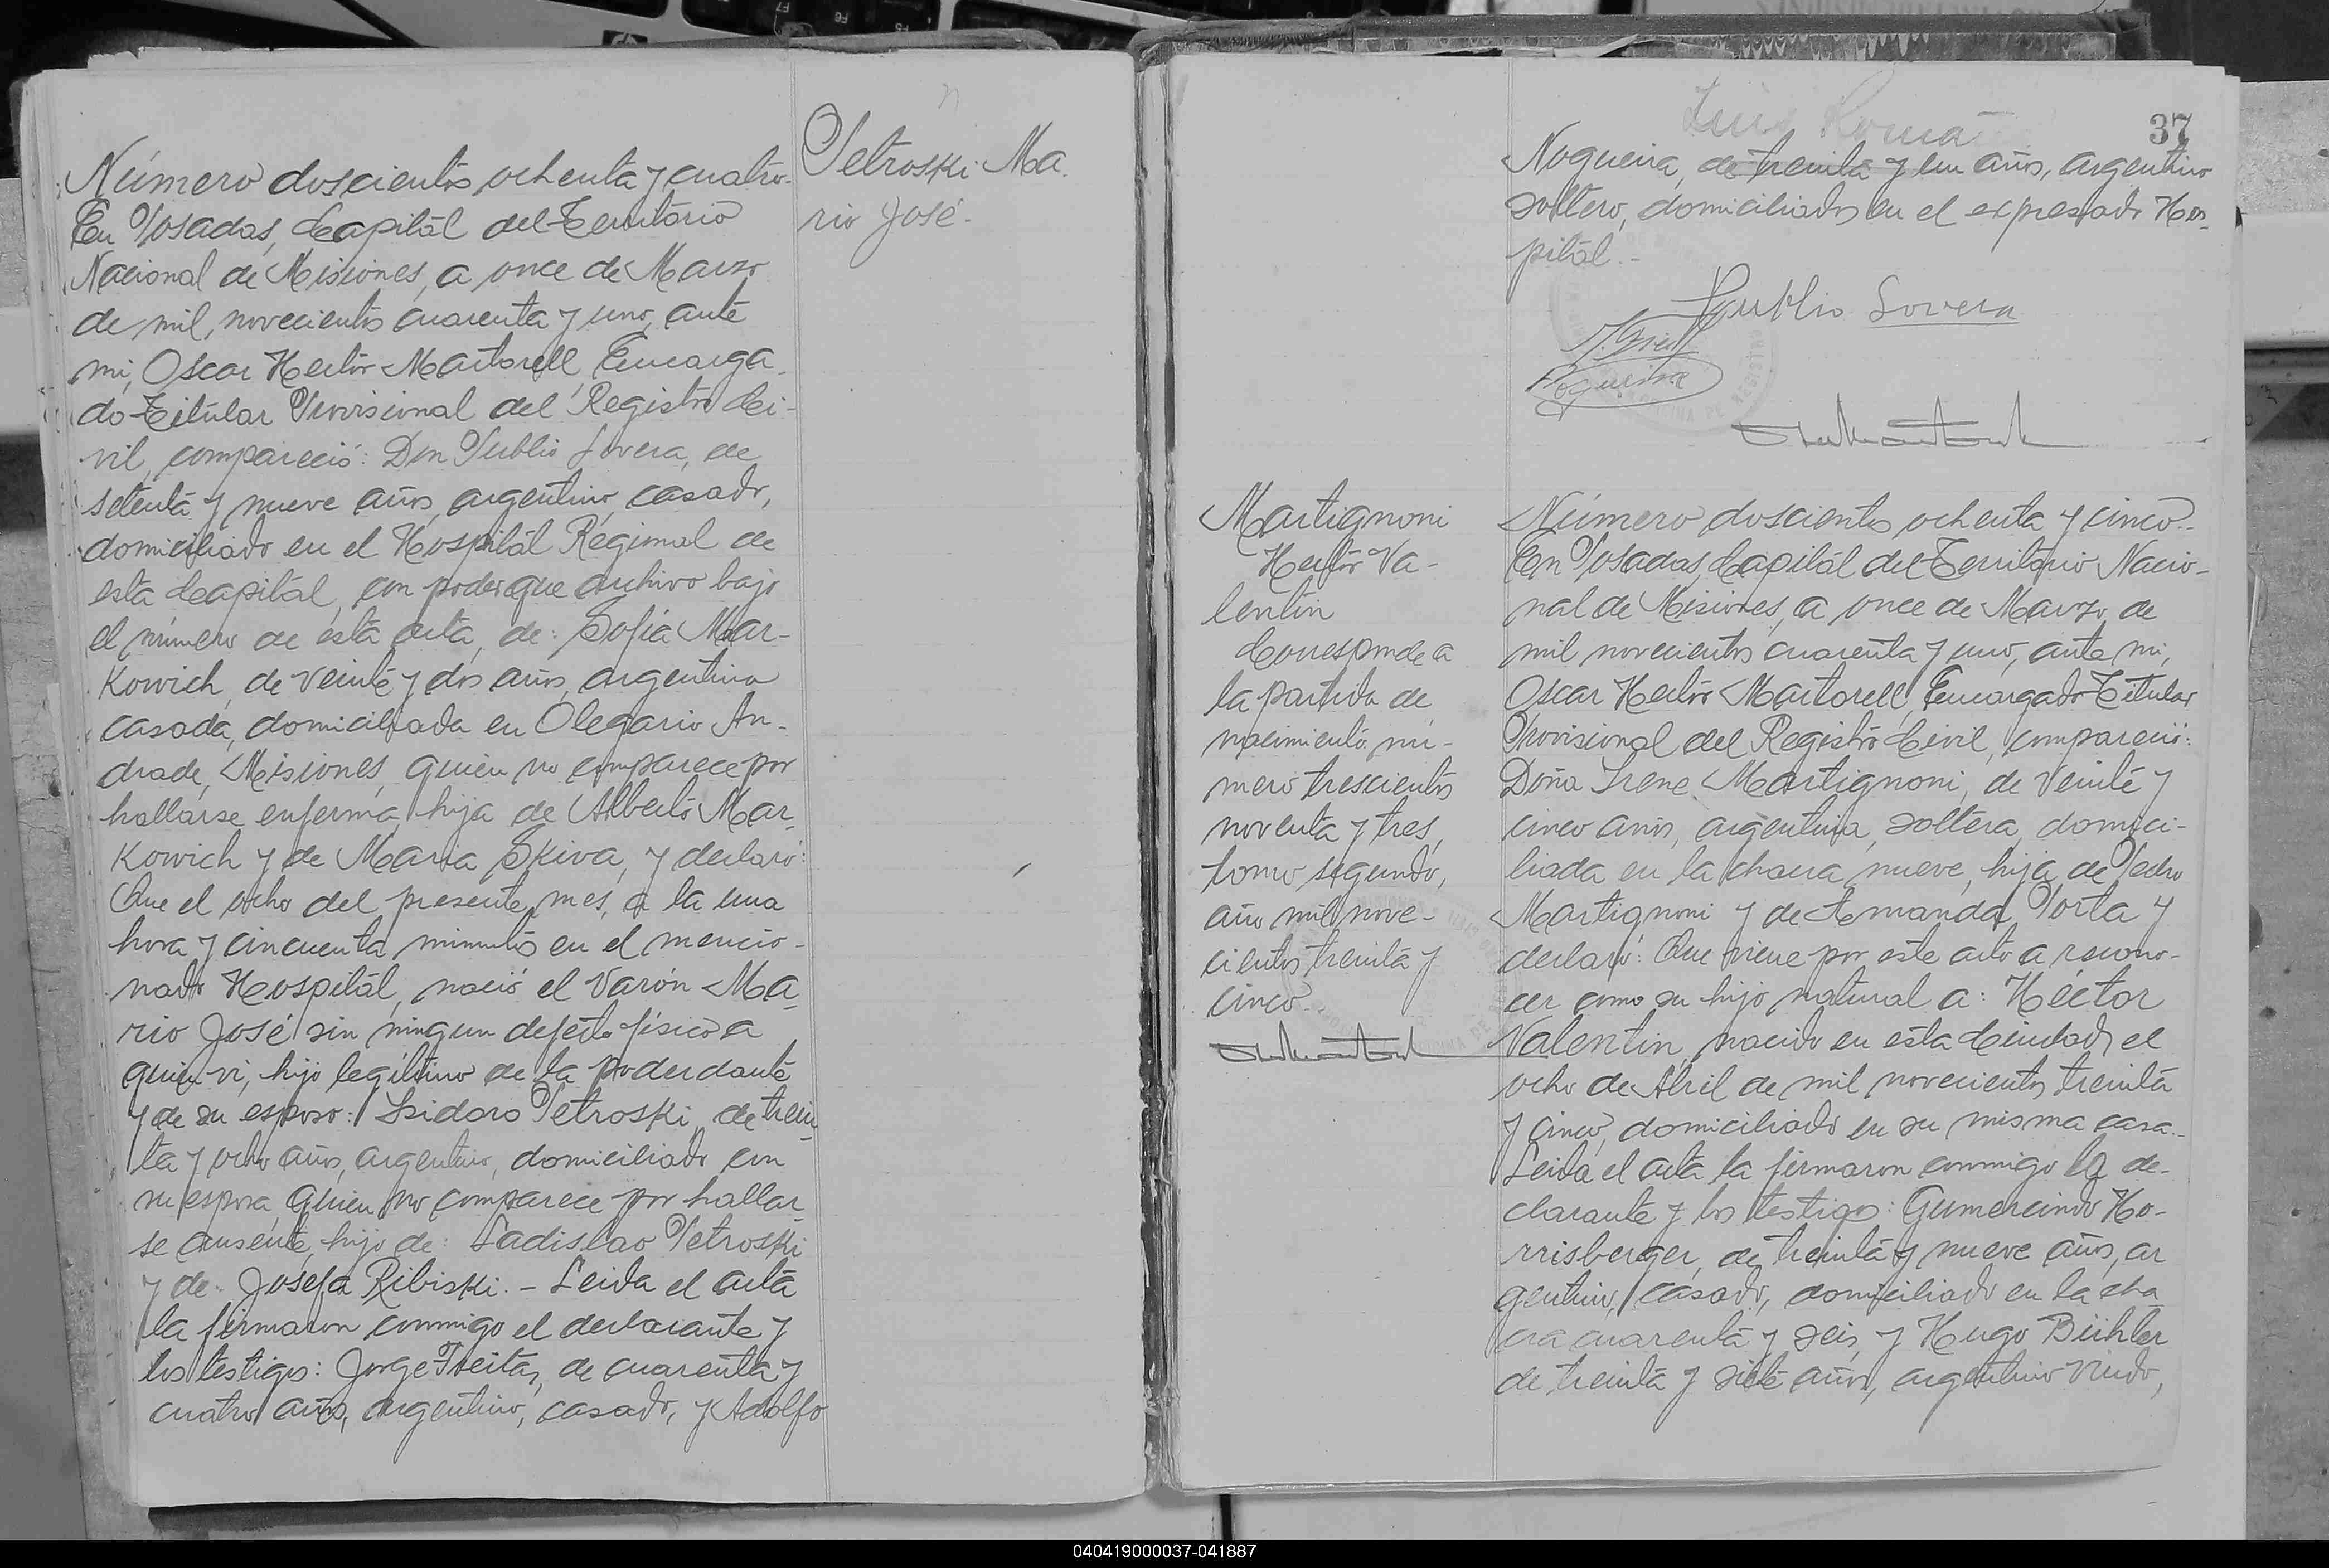 Número doscientos ochenta y cuatro.
En Posadas, Capital del Territorio
Nacional de Misiones, a once de Marzo
de mil, novecientos cuarenta y uno, ante
mi, Oscar Hector Martorell, Encarga-
do Titular Provisional del Registro Ci-
vil, compareció: Don Publio Lovera, de
setenta y nueve años, argentino, casado,
domiciliado en el Hospital Regional de
esta Capital, con poder que archivo bajo
el número de esta acta, de: Sofia Mar-
kowich, de veinte y dos años, argentina
casada, domiciliada en Olegario An-
drade, Misiones, quien no comparece por
hallarse enferma, hija de Alberto Mar-
kowich y de Maria Skiva, y declaró:
Que el ocho del presente mes, a la una
hora y cincuenta minutos en el mencio-
nado Hospital, nació el varón Ma-
rio José sin ningun defecto fisico a
quien vi, hijo legitimo de la poderdante
y de su esposo: Isidoro Petroski, de trein-
ta y ocho años, argentino, domiciliado con
su esposa, quien no comparece por hallar-
se ausente, hijo de: Ladislao Petroski
y de: Josefa Ribiski. - Leida el acta
la firmaron conmigo el declarante y
los testigos: Jorge Freitas, de cuarenta y
cuatro años, argentino, casado, y Adolfo
Petroski Ma-
rio José.
37
Nogueira, de treinta y un años, argentino
soltero, domiciliados en el expresado Hos-
pital.-
Publio Lovera
Martignoni
Hector Va-
lentin
Corresponde a
la partida de
nacimiento nú-
mero trescientos
noventa y tres,
tomo segundo,
año mil nove-
cientos treinta y
cinco.
Número doscientos ochenta y cinco.-
En Posadas, Capital del Territorio Nacio-
nal de Misiones, a once de Marzo, de
mil novecientos cuarenta y uno, ante mi,
Oscar Hector Martorell, Encargado Titular
Provisional del Registro Civil, compareció:
Doña Irene Martignoni, de veinte y
cinco años, argentina, soltera, domici-
liada en la chacra nueve, hija de Pedro
Martignoni y de Amanda Porta y
declaró: Que viene por este acto a recono-
cer como su hijo natural a: Héctor
Valentin, nacido en esta Ciudad, el
ocho de Abril de mil novecientos treinta
y cinco, domiciliado en su misma casa.-
Leida el acta la firmaron conmigo la de-
clarante y los testigos: Gumercindo Ho-
rrisberger, de treinta y nueve años, ar
gentino, casado, domiciliado en la cha
cra cuarenta y seis, y Hugo Bühler
de treinta y siete años, argentino viudo,
040419000037-041887